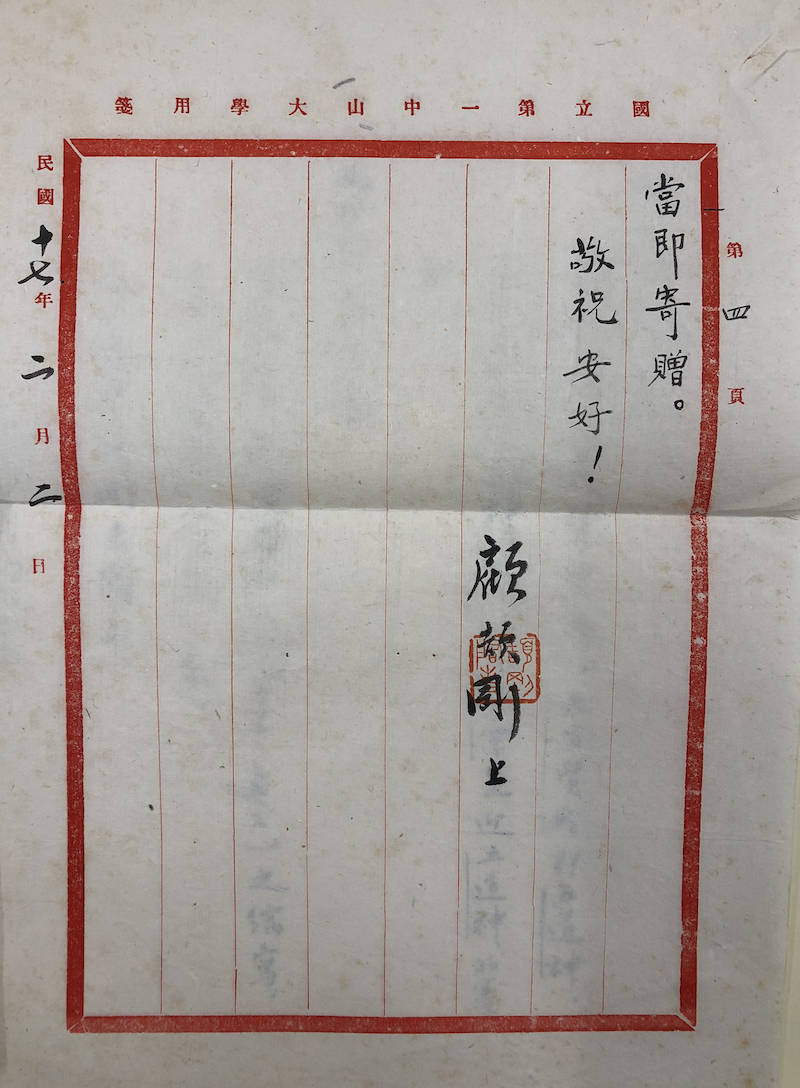 國立第一中山大學用箋
第四頁
當即寄贈。
敬祝安好！
顧頡剛上
民國十七年二月二日